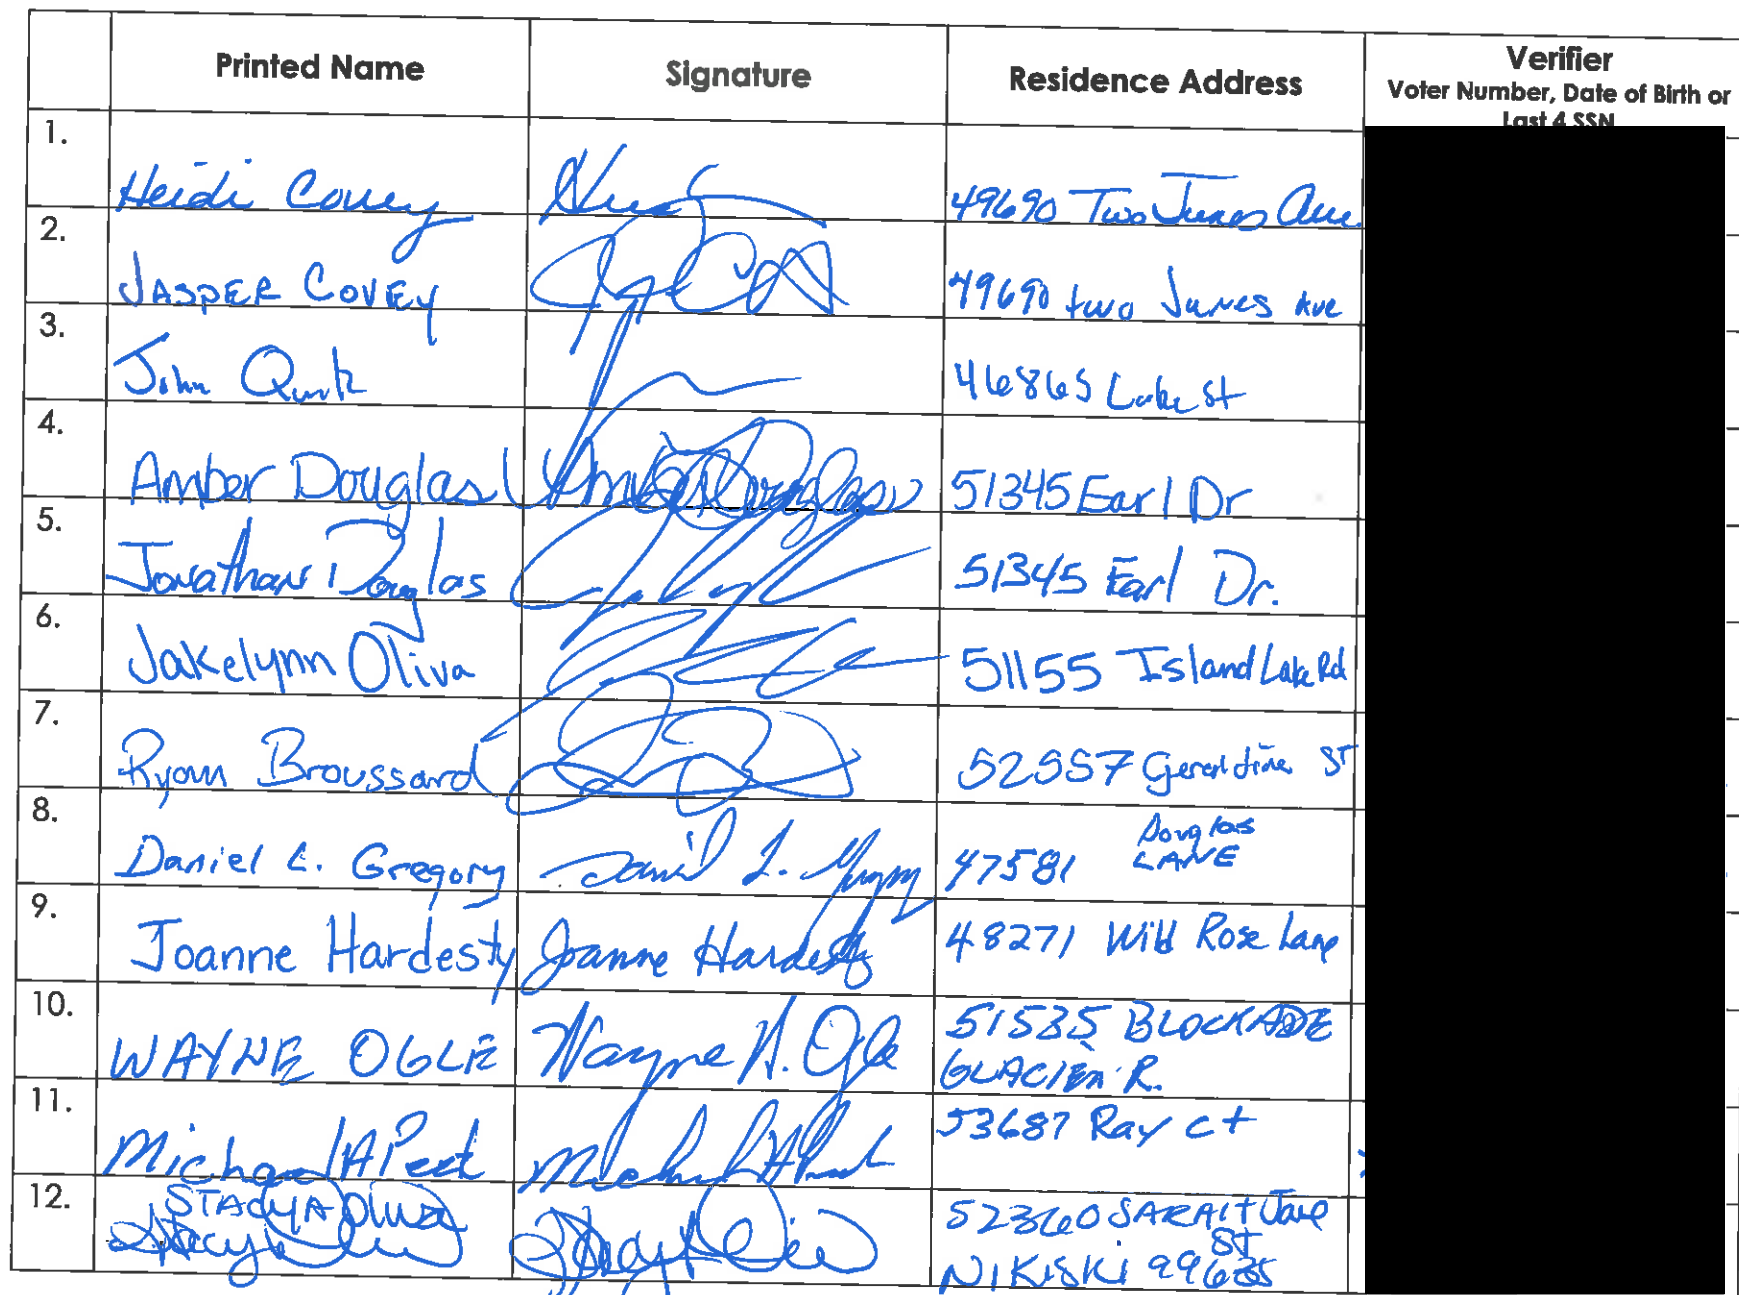 Printed Name Signature Residence Address Verifier
Voter Number, Date of Birth or
Last 4 SSN
1. Heidi Covey 49690 Two Junes Ave
2. JASPER COVEY 49690 two Junes Ave
3. John Quirk 46865 Lake St
4. Amber Douglas Amber Douglas 51345 Earl Dr
5. Jonathan Douglas 51345 Earl Dr.
6. Jakelynn Oliva 51155 Island Lake Rd
7. Ryan Broussard 52557 Geraldine ST
8. Daniel L. Gregory Daniel L. Gregory 47581 Douglas
LANE
9. Joanne Hardesty Joanne Hardesty 48271 Wild Rose Lane
10. WAYNE OGLE Wayne H. Ogle 51535 BLOCKADE
GLACIER R.
11. Michael A Peek 53687 Ray Ct
12. STACY A Oliva 52360 SARAH Jane
ST
NIKISKI 99635